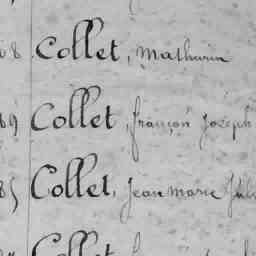 08 Collet, Mathurin
69 Collet, françois Joseph
85 Collet, Jean Marie
Collet